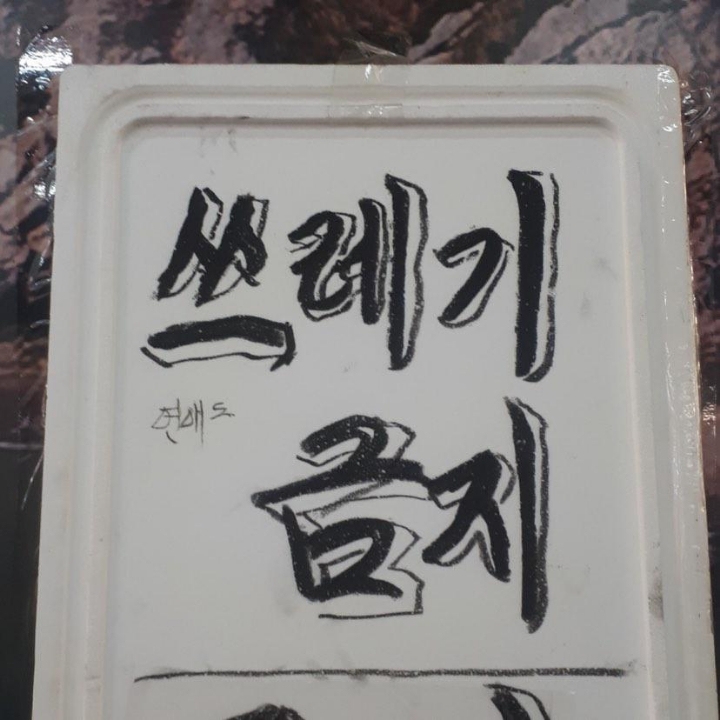 쓰레기
연애도
금지